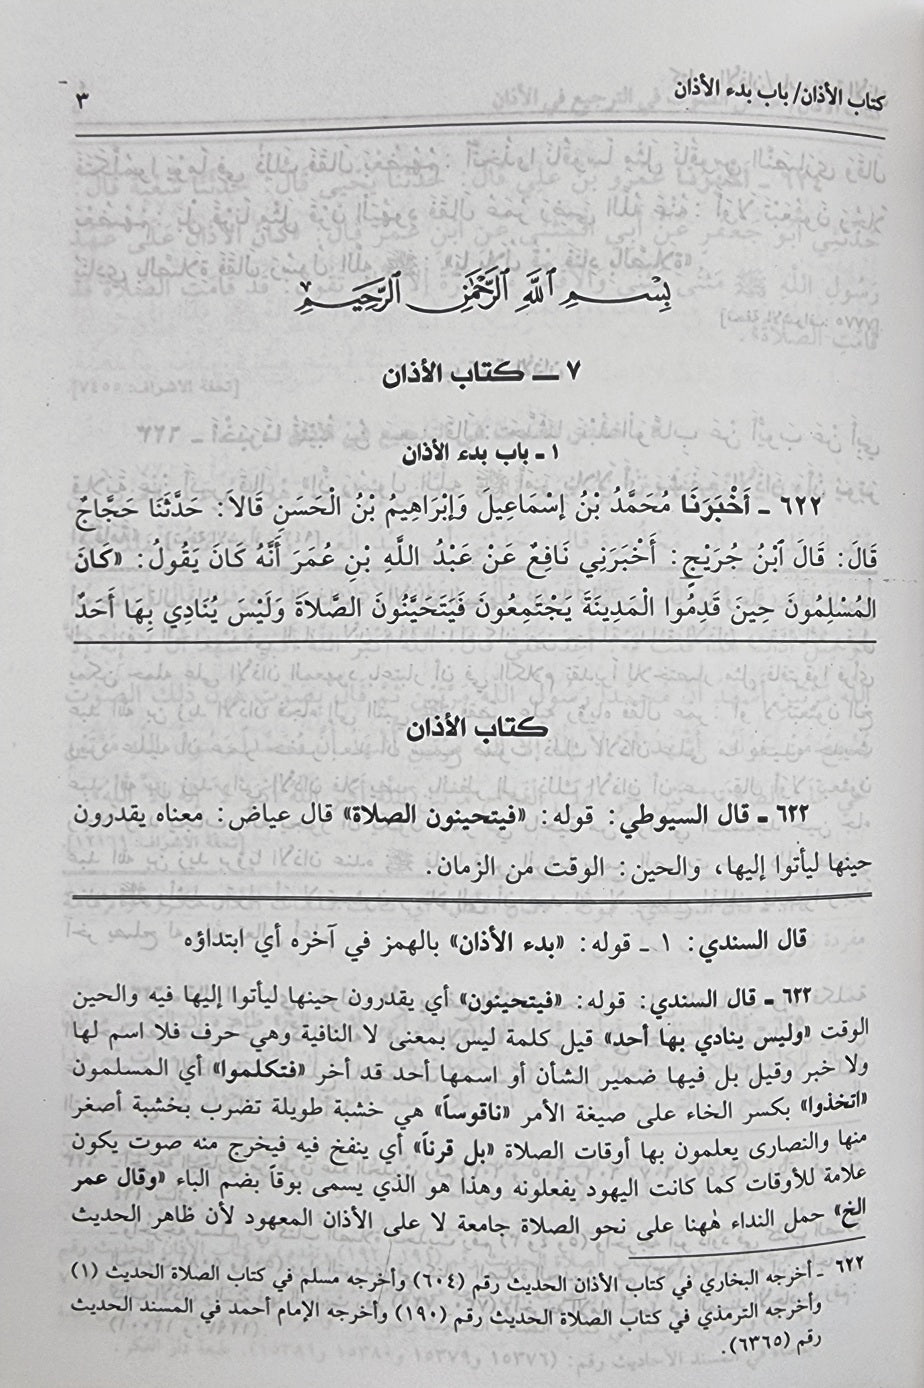 كتاب الأذان/ باب بدء الأذان
٣
بِسْمِ ٱللَّهِ ٱلرَّحْمَٰنِ ٱلرَّحِيمِ
٧ ــ كتاب الأذان
١ ـ باب بدء الأذان
٦٢٢ ـ أَخْبَرَنَا مُحَمَّدُ بْنُ إِسْمَاعِيلَ وَإِبْرَاهِيمُ بْنُ الْحَسَنِ قَالاَ: حَدَّثَنَا حَجَّاجٌ
قَالَ: قَالَ ٱبْنُ جُرَيْجٍ: أَخْبَرَنِي نَافِعٌ عَنْ عَبْدِ اللَّهِ بْنِ عُمَرَ أَنَّهُ كَانَ يَقُولُ: «كَانَ
المُسْلِمُونَ حِينَ قَدِمُوا الْمَدِينَةَ يَجْتَمِعُونَ فَيَتَحَيَّنُونَ الصَّلاَةَ وَلَيْسَ يُنَادِي بِهَا أَحَدٌ
كتاب الأذان
٦٢٢ ـ قال السيوطي: قوله: «فيتحينون الصلاة» قال عياض: معناه يقدرون
حينها ليأتوا إليها، والحين: الوقت من الزمان.
قال السندي: ١ ـ قوله: «بدء الأذان» بالهمز في آخره أي ابتداؤه
٦٢٢ ـ قال السندي: قوله: «فيتحينون» أي يقدرون حينها ليأتوا إليها فيه والحين
الوقت «وليس ينادي بها أحد» قيل كلمة ليس بمعنى لا النافية وهي حرف فلا اسم لها
ولا خبر وقيل بل فيها ضمير الشأن أو اسمها أحد قد أخر «فتكلموا» أي المسلمون
«اتخذوا» بكسر الخاء على صيغة الأمر «ناقوساً» هي خشبة طويلة تضرب بخشبة أصغر
منها والنصارى يعلمون بها أوقات الصلاة «بل قرناً» أي ينفخ فيه فيخرج منه صوت يكون
علامة للأوقات كما كانت اليهود يفعلونه وهذا هو الذي يسمى بوقاً بضم الباء «وقال عمر
الخ» حمل النداء ههنا على نحو الصلاة جامعة لا على الأذان المعهود لأن ظاهر الحديث
٦٢٢ ـ أخرجه البخاري في كتاب الأذان الحديث رقم (٦٠٤) وأخرجه مسلم في كتاب الصلاة الحديث (١)
وأخرجه الترمذي في كتاب الصلاة الحديث رقم (١٩٠) وأخرجه الإمام أحمد في المسند الحديث
رقم (٦٣٦٥).